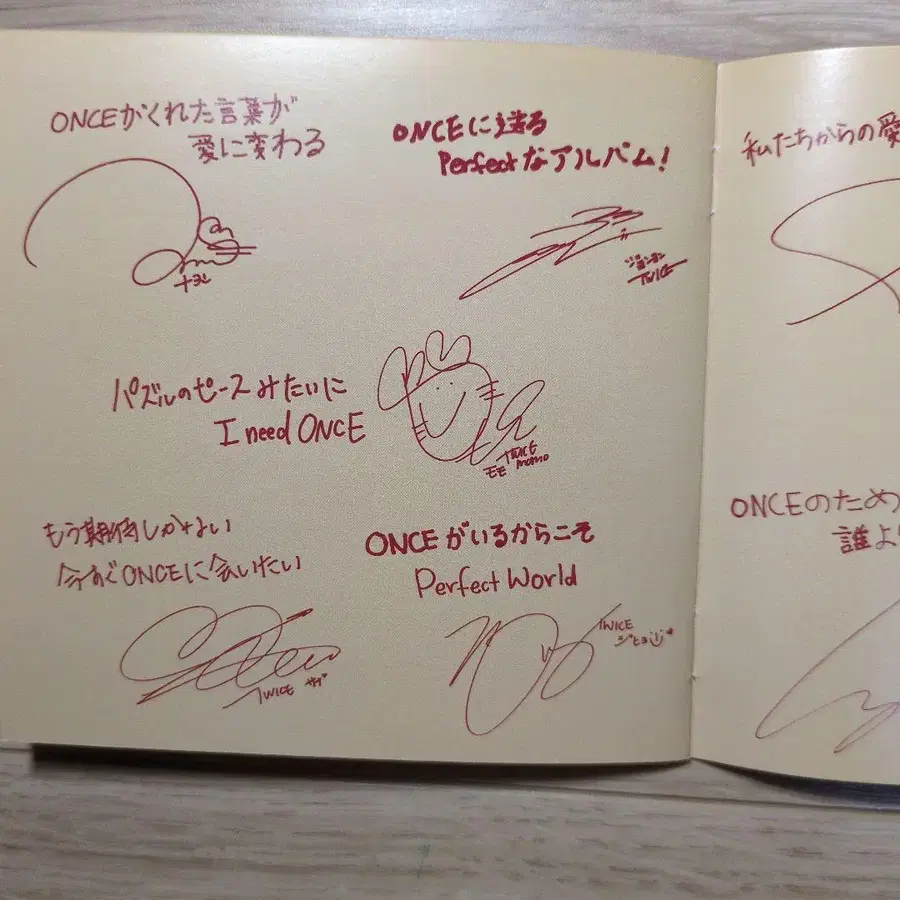 ONCEがくれた言葉が
愛に変わる
ナヨン
ONCEに送る
Perfectなアルバム!
ジョンヨン
TWICE
パズルのピースみたいに
I need ONCE
TWICE
モモ momo
もう期待しかない
今すぐONCEに会いたい
TWICE サナ
ONCEがいるからこそ
Perfect World
TWICE
ジヒョ
私たちからの愛
ONCEのため
誰よ